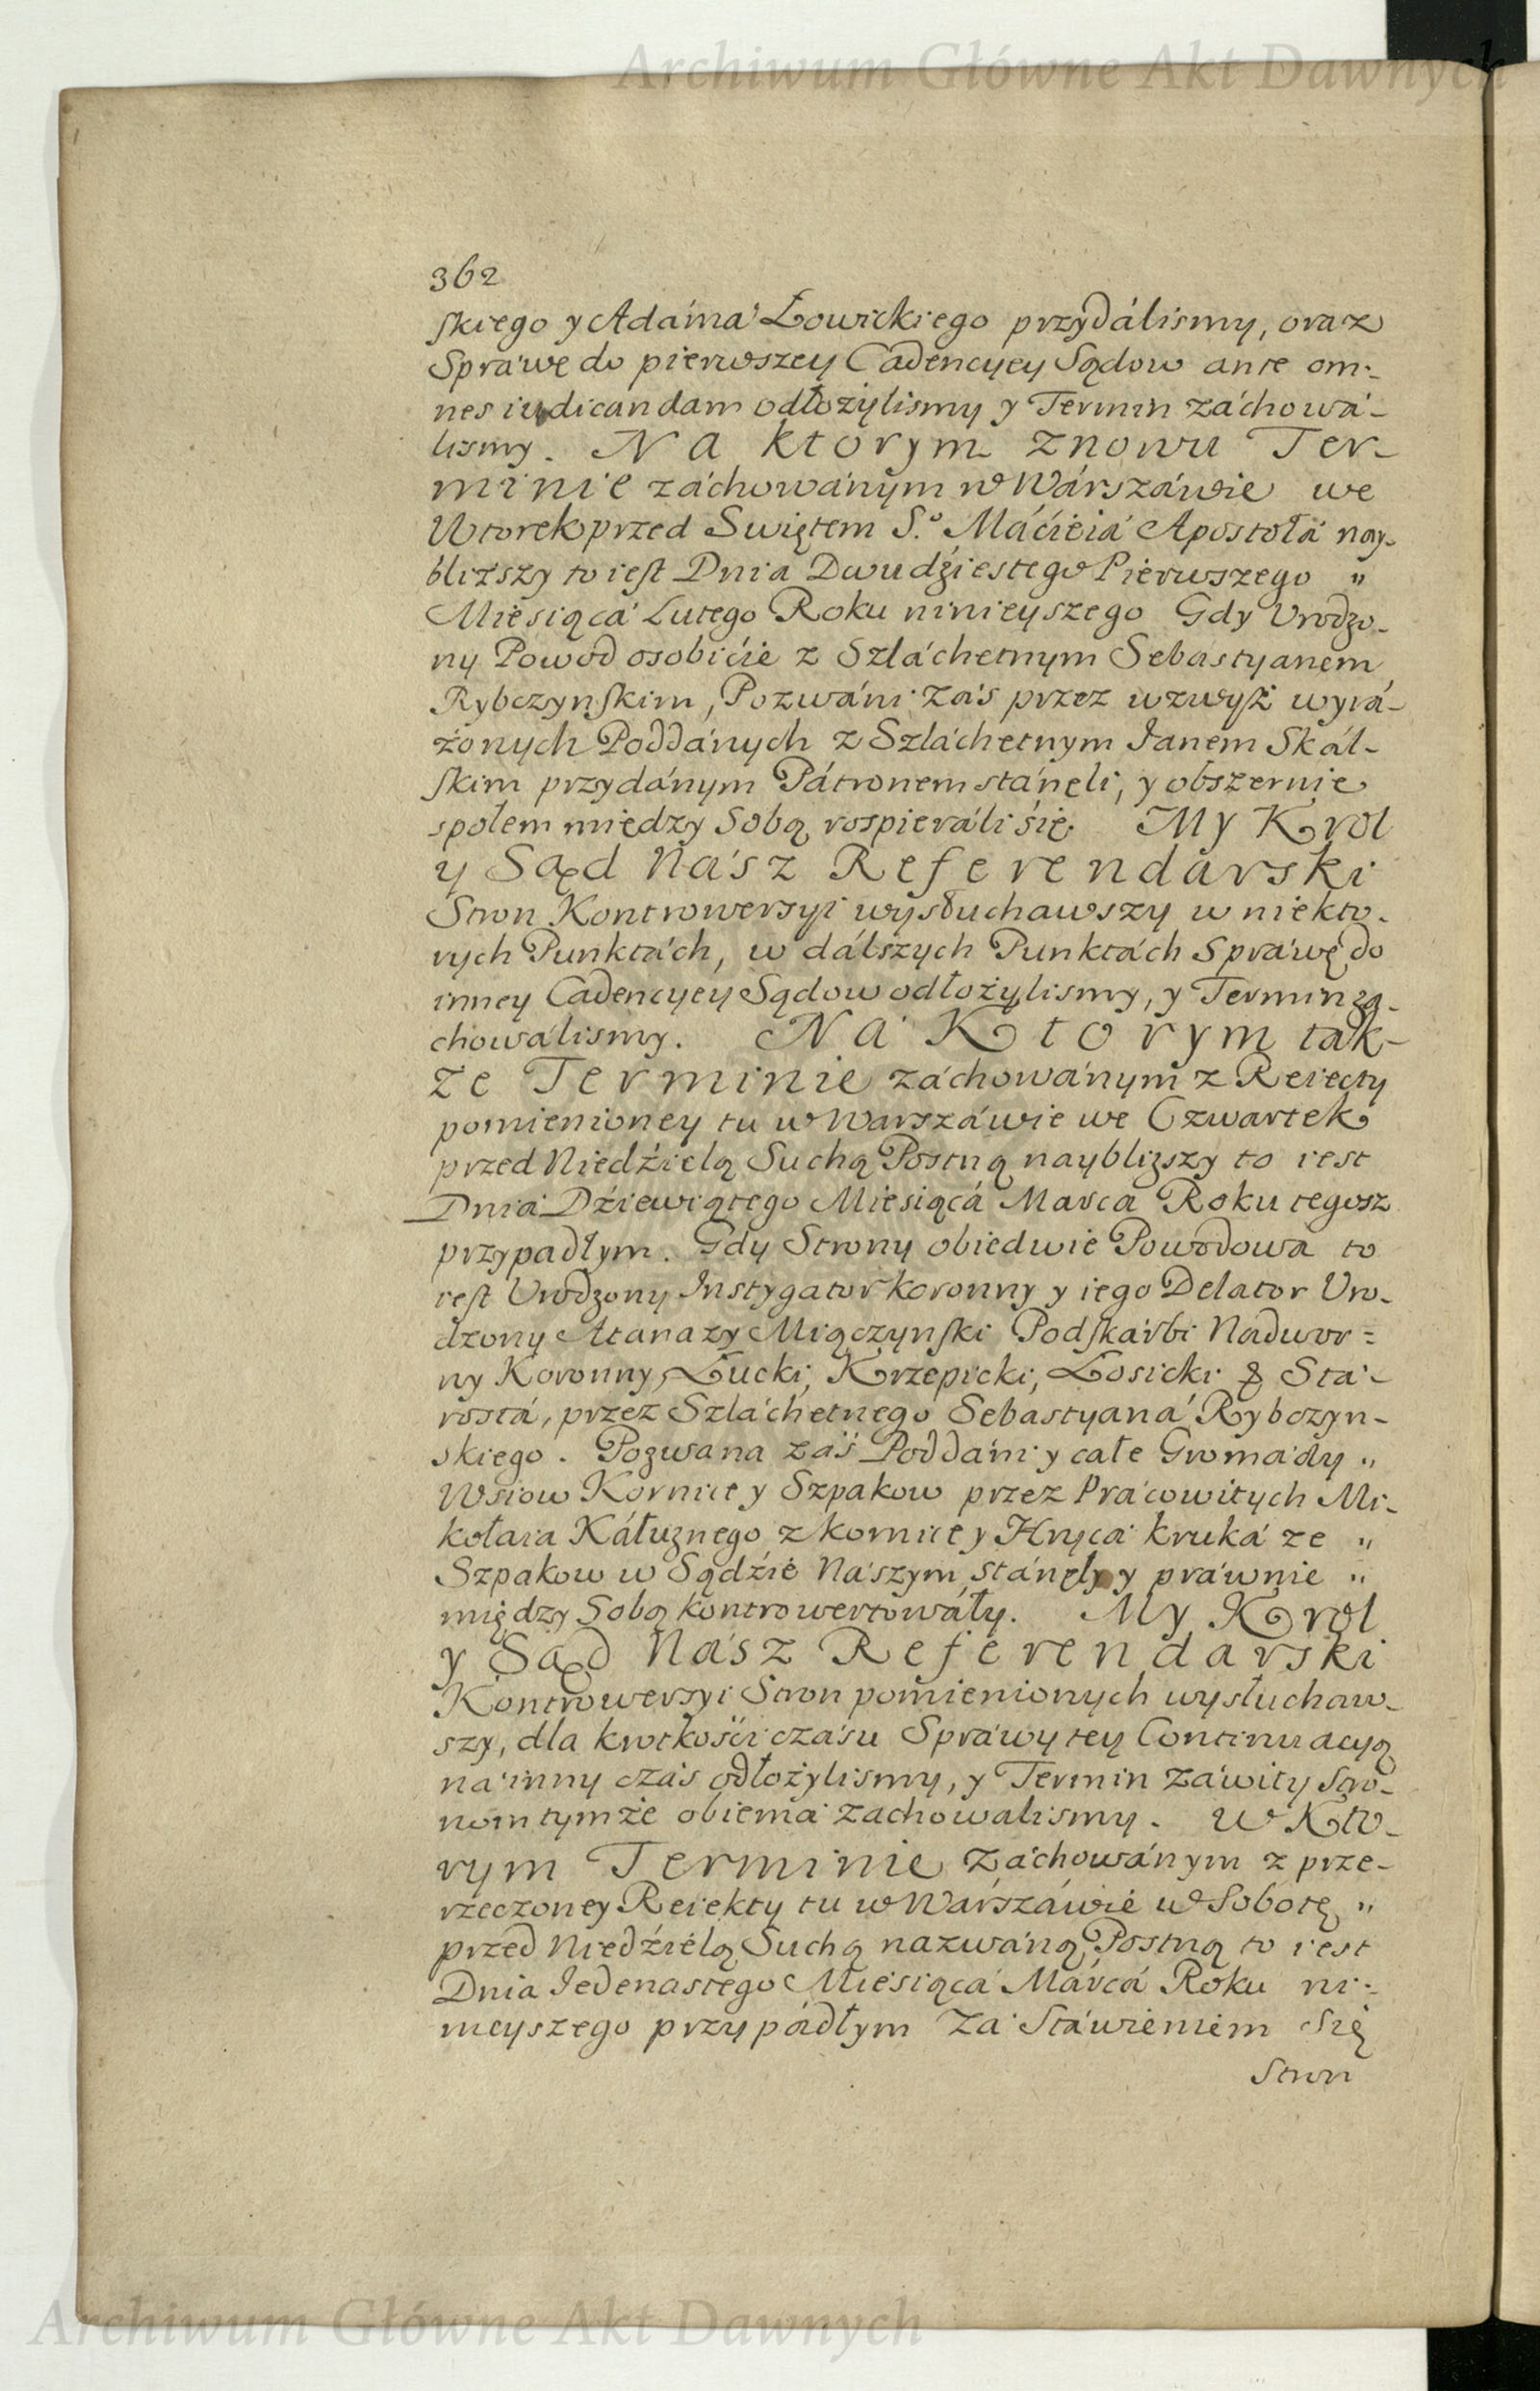 Archiwum Główne Akt Dawnych
362
skiego y Adáma Łowickiego przydálismy, oraz
Spráwę do pierwszey Cadencyey Sądow ante om-
nes iudicandam odłożylismy y Termin záchowá-
lismy. Na ktorym znowu Ter-
minie záchowánym w Wárszáwie we
Wtorek przed Swiętem S.º Máćieiá Apostołá nay-
bliższy to iest Dnia Dwudźiestego Pierwszego "
Miesiącá Lutego Roku ninieyszego Gdy Urodzo-
ny Powod osobiśćie z Szláchetnym Sebastyanem
Rybczynskim, Pozwáni záś przez wzwyż wyrá-
żonych Poddánych z Szláchetnym Janem Skál-
skim przydánym Pátronem stánęli, y obszernie
społem między Sobą rospieráli się. My Krol
y Sąd Nász Referendárski
Stron Kontrowersyi wysłuchawszy w niekto-
rych Punktách, w dálszych Punktách Spráwę do
inney Cadencyey Sądow odłożylismy, y Termin za-
chowálismy. Ná Ktorym tak-
że Terminie záchowánym z Reiecty
pomienioney tu w Warszáwie we Czwartek
przed Niedźielą Suchą Postną naybliższy to iest
Dniá Dźiewiątego Miesiącá Marca Roku tegosz
przypadłym. Gdy Strony obiedwie Powodowa to
iest Urodzony Instygator koronny y iego Delator Uro-
dzony Atanazy Miączynski Podskárbi Nadwor=
ny Koronny, Łucki, Krzepicki, Łosicki & Stá-
rostá, przez Szláchetnego Sebastyaná Rybczyn-
skiego. Pozwana záś Poddáni y całe Gromády "
Wsiow Kornice y Szpakow przez Prácowitych Mi-
kołaia Káłuznego z kornice y Hrycá kruká ze "
Szpakow w Sądźie Nászym stánęły y práwnie "
między Sobą kontrowertowáły. My Krol
y Sąd Nász Referendarski
Kontrowersyi Stron pomienionych wysłuchaw-
szy, dla krotkośći czásu Spráwy tey Continuacyą
ná inny czás odłożylismy, y Termin záwity Stro-
nom tymże obiemá zachowalismy. W Kto-
rym Terminie záchowánym z prze-
rzeczoney Reiekty tu w Wárszáwie w Sobotę "
przed Niedźielą Suchą nazwáną Postną to iest
Dnia Jedenastego Miesiącá Márcá Roku ni-
nieyszego przypádłym zá Stáwieniem się
Stron
Archiwum Główne Akt Dawnych